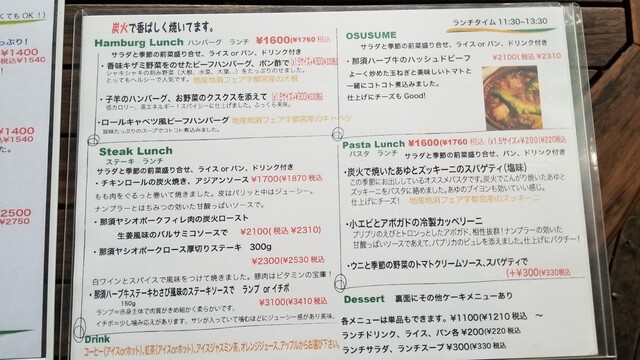 くても OK！）
っぷり！
¥1400
税込¥1540
¥1400
¥2500
¥2750
炭火で香ばしく焼いてます。
Hamburg Lunch ハンバーグ ランチ ¥1600(¥1760 税込
サラダと季節の前菜盛り合せ、ライス or パン、ドリンク付き
・香味キザミ野菜をのせたビーフハンバーグ、ポン酢で
シャキシャキの刻み野菜（大根、水菜、大葉..）をたっぷりのせました。
とってもヘルシーで人気です。 地産地消フェア宇都宮産の大根
・子羊のハンバーグ、お野菜のクスクスを添えて
低カロリー、高エネルギー！スパイシーに仕上げました。ふっくら美味。
・ロールキャベツ風ビーフハンバーグ 地産地消フェア宇都宮産のキャベツ
旨味たっぷりのスープでコトコト煮込みました。
Steak Lunch
ステーキ ランチ
サラダと季節の前菜盛り合せ、ライス or パン、ドリンク付き
・チキンロールの炭火焼き、アジアンソース ¥1700(¥1870 税込
もも肉をぐるっと巻いて焼きました。皮はパリッと中はジューシー。
ナンプラーとはちみつの効いた甘酸っぱいソースで。
・那須ヤシオポークフィレ肉の炭火ロースト
生姜風味のバルサミコソースで ¥2100( 税込 ¥2310)
・那須ヤシオポークロース厚切りステーキ 300g
¥2300(¥2530 税込
白ワインとスパイスで風味をつけて焼きました。豚肉はビタミンの宝庫！
・那須ハーブ牛ステーキわさび風味のステーキソースで ランプ or イチボ
150g
¥3100(¥3410 税込
ランプ=赤身主体で肉質がきめ細かく柔らかです。
イチボ=少し噛み応えがあります。サシが入っていて噛むほどにジューシー感があり美味。
Drink
コーヒー(アイスorホット)、紅茶(アイスorホット)、アイスジャスミン茶、オレンジジュース、アップルからお選び下さい。
ランチタイム 11:30~13:30
OSUSUME
サラダと季節の前菜盛り合せ、ライス or パン、ドリンク付き
・那須ハーブ牛のハッシュドビーフ
¥2100( 税込 ¥2310
よーく炒めた玉ねぎと美味しいトマトと
一緒にコトコト煮込みました。
仕上げにチーズも Good!
Pasta Lunch ¥1600(¥1760 税込 (x1.5サイズ+¥200(¥220税込
パスタ ランチ サラダと季節の前菜盛り合せ、パン、ドリンク付き
・炭火で焼いたあゆとズッキーニのスパゲティ(塩味)
この季節にお出ししているオススメパスタです。炭火でこんがり焼いたあゆと
ズッキーニをパスタに絡めました。あゆのブイヨンも効いていい感じ。
仕上げにチーズ！ 地産地消フェア宇都宮産のズッキーニ
・小エビとアボガドの冷製カッペリーニ
プリプリのえびとトロンっとしたアボガド、相性抜群！ナンプラーの効いた
甘酸っぱいソースであえて、パプリカのピュレを添えました。仕上げにパクチー！
・ウニと季節の野菜のトマトクリームソース、スパゲティで
(+¥300(¥330税込
Dessert 裏面にその他ケーキメニューあり
各メニューは単品もできます。¥1100(¥1210 税込 ～
ランチドリンク、ライス、パン各 ¥200(¥220 税込
ランチサラダ、ランチスープ ¥300(¥330 税込